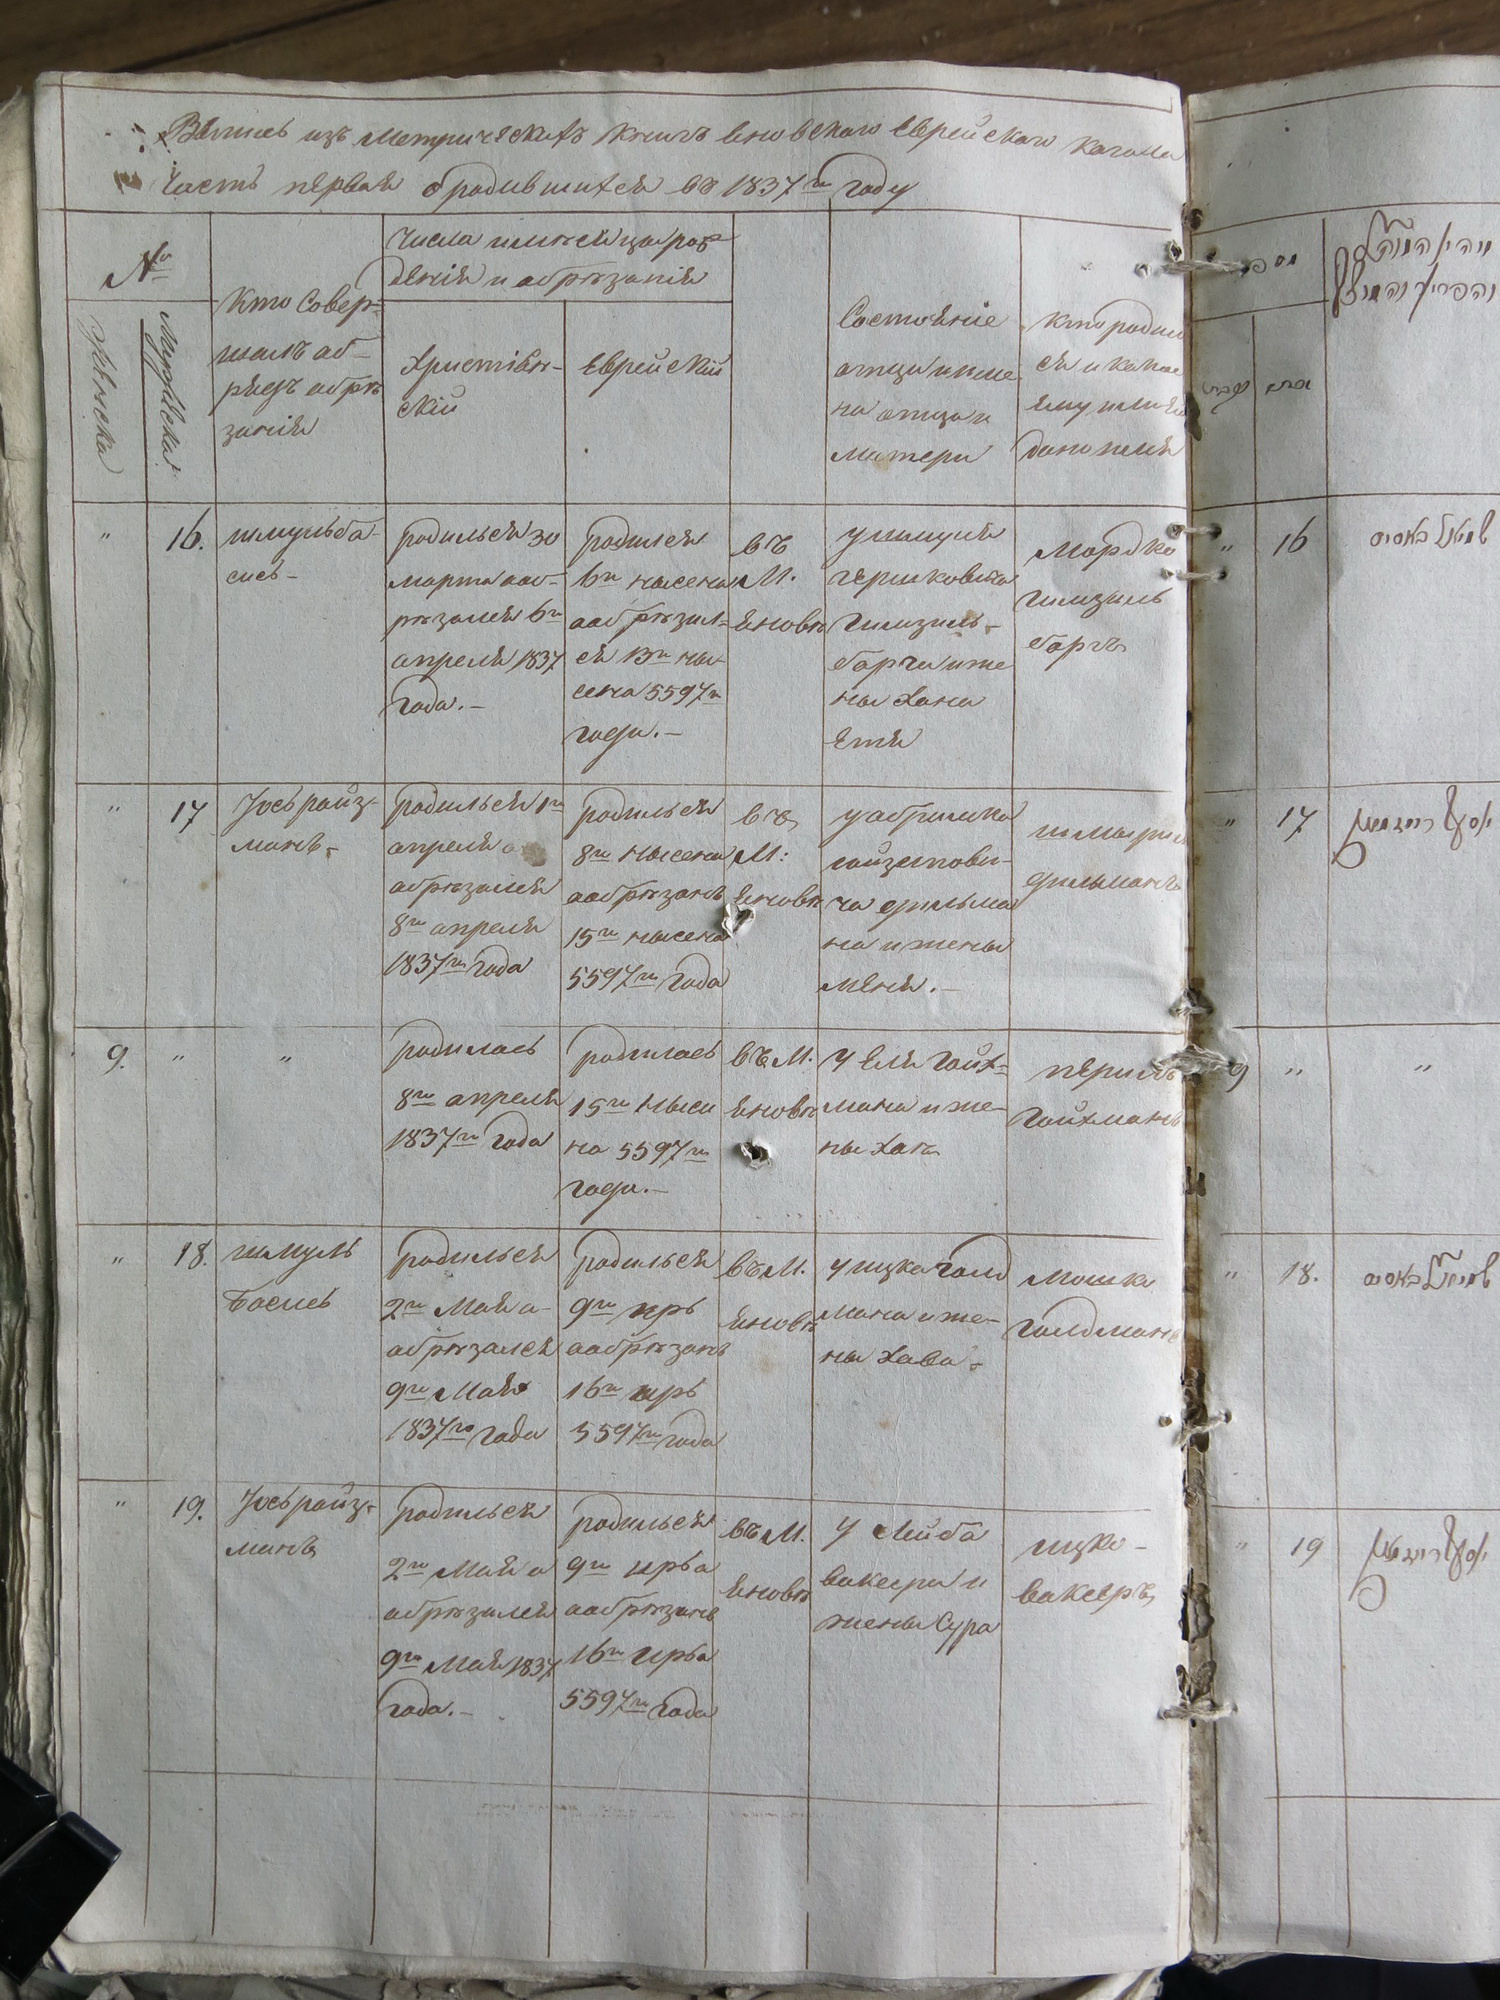 Выпись изъ метрическихъ книгъ Еновскаго Еврейскаго Кагала
Часть первая о родившихся въ 1837го году
№
Женска
Мужеска
Кто Совер=
шалъ об-
рядъ обрѣ
занія
Числа и месяцы рож
денія и обрѣзанія
Христіян-
скій
Еврейскій
Состояніе
отца и име
на отца и
матери
Кто родил
ся и какое
ему или ей
дано имя
" 16.
шмуль ба-
сись-
родился 30
марта а об-
рѣзался 6го
апреля 1837
года.-
родился
6го нысена
а обрѣзал=
ся 13го ны-
сена 5597го
года.-
въ
М.
Яновѣ
гершковича
гинзиль-
барга и же
ны Хана
Етя
Мордко
гинзиль
баргъ
" 17
Іосъ райз-
манъ-
родился 1го
апреля
обрѣзался
8го апреля
1837го года
родился
8го нысена
а обрѣзанъ
15го нысена
5597го года
въ
М:
Яновѣ
у абрамка
ча фильма
на и жены
меня.-
фильманъ
9. " "
родилась
8го апреля
1837го года
родилась
15го ныси
на 5597го
года.-
въ М.
Яновѣ
у Еля гойх=
мана и же-
ны Хая
перль
гойхманъ
" 18.
шмуль
басись
родился
2го Мая а
обрѣзался
9го Мая
1837го года
родился
9го иръ
а обрѣзанъ
16го иръ
5597го года
въ М.
Яновѣ
у ицка голд
мана и же-
ны Хава-
мошко
голдманъ
" 19.
Іосъ райз-
манъ
родился
2го Мая а
обрѣзался
9го Мая 1837
года.-
родился
9го иръа
а обрѣзанъ
16го иръа
5597го года
въ М.
Яновѣ
у Лейба
ваксера и
жены Сура
ицко-
ваксеръ
" 16
שמואל באסיס
" 17
יוסף רייזמאן
9 " "
" 18.
שמואל באסיס
" 19
יוסף רייזמאן